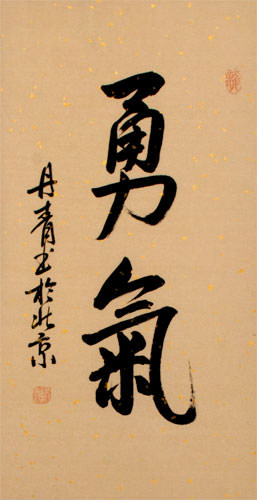 勇氣
丹青书於北京